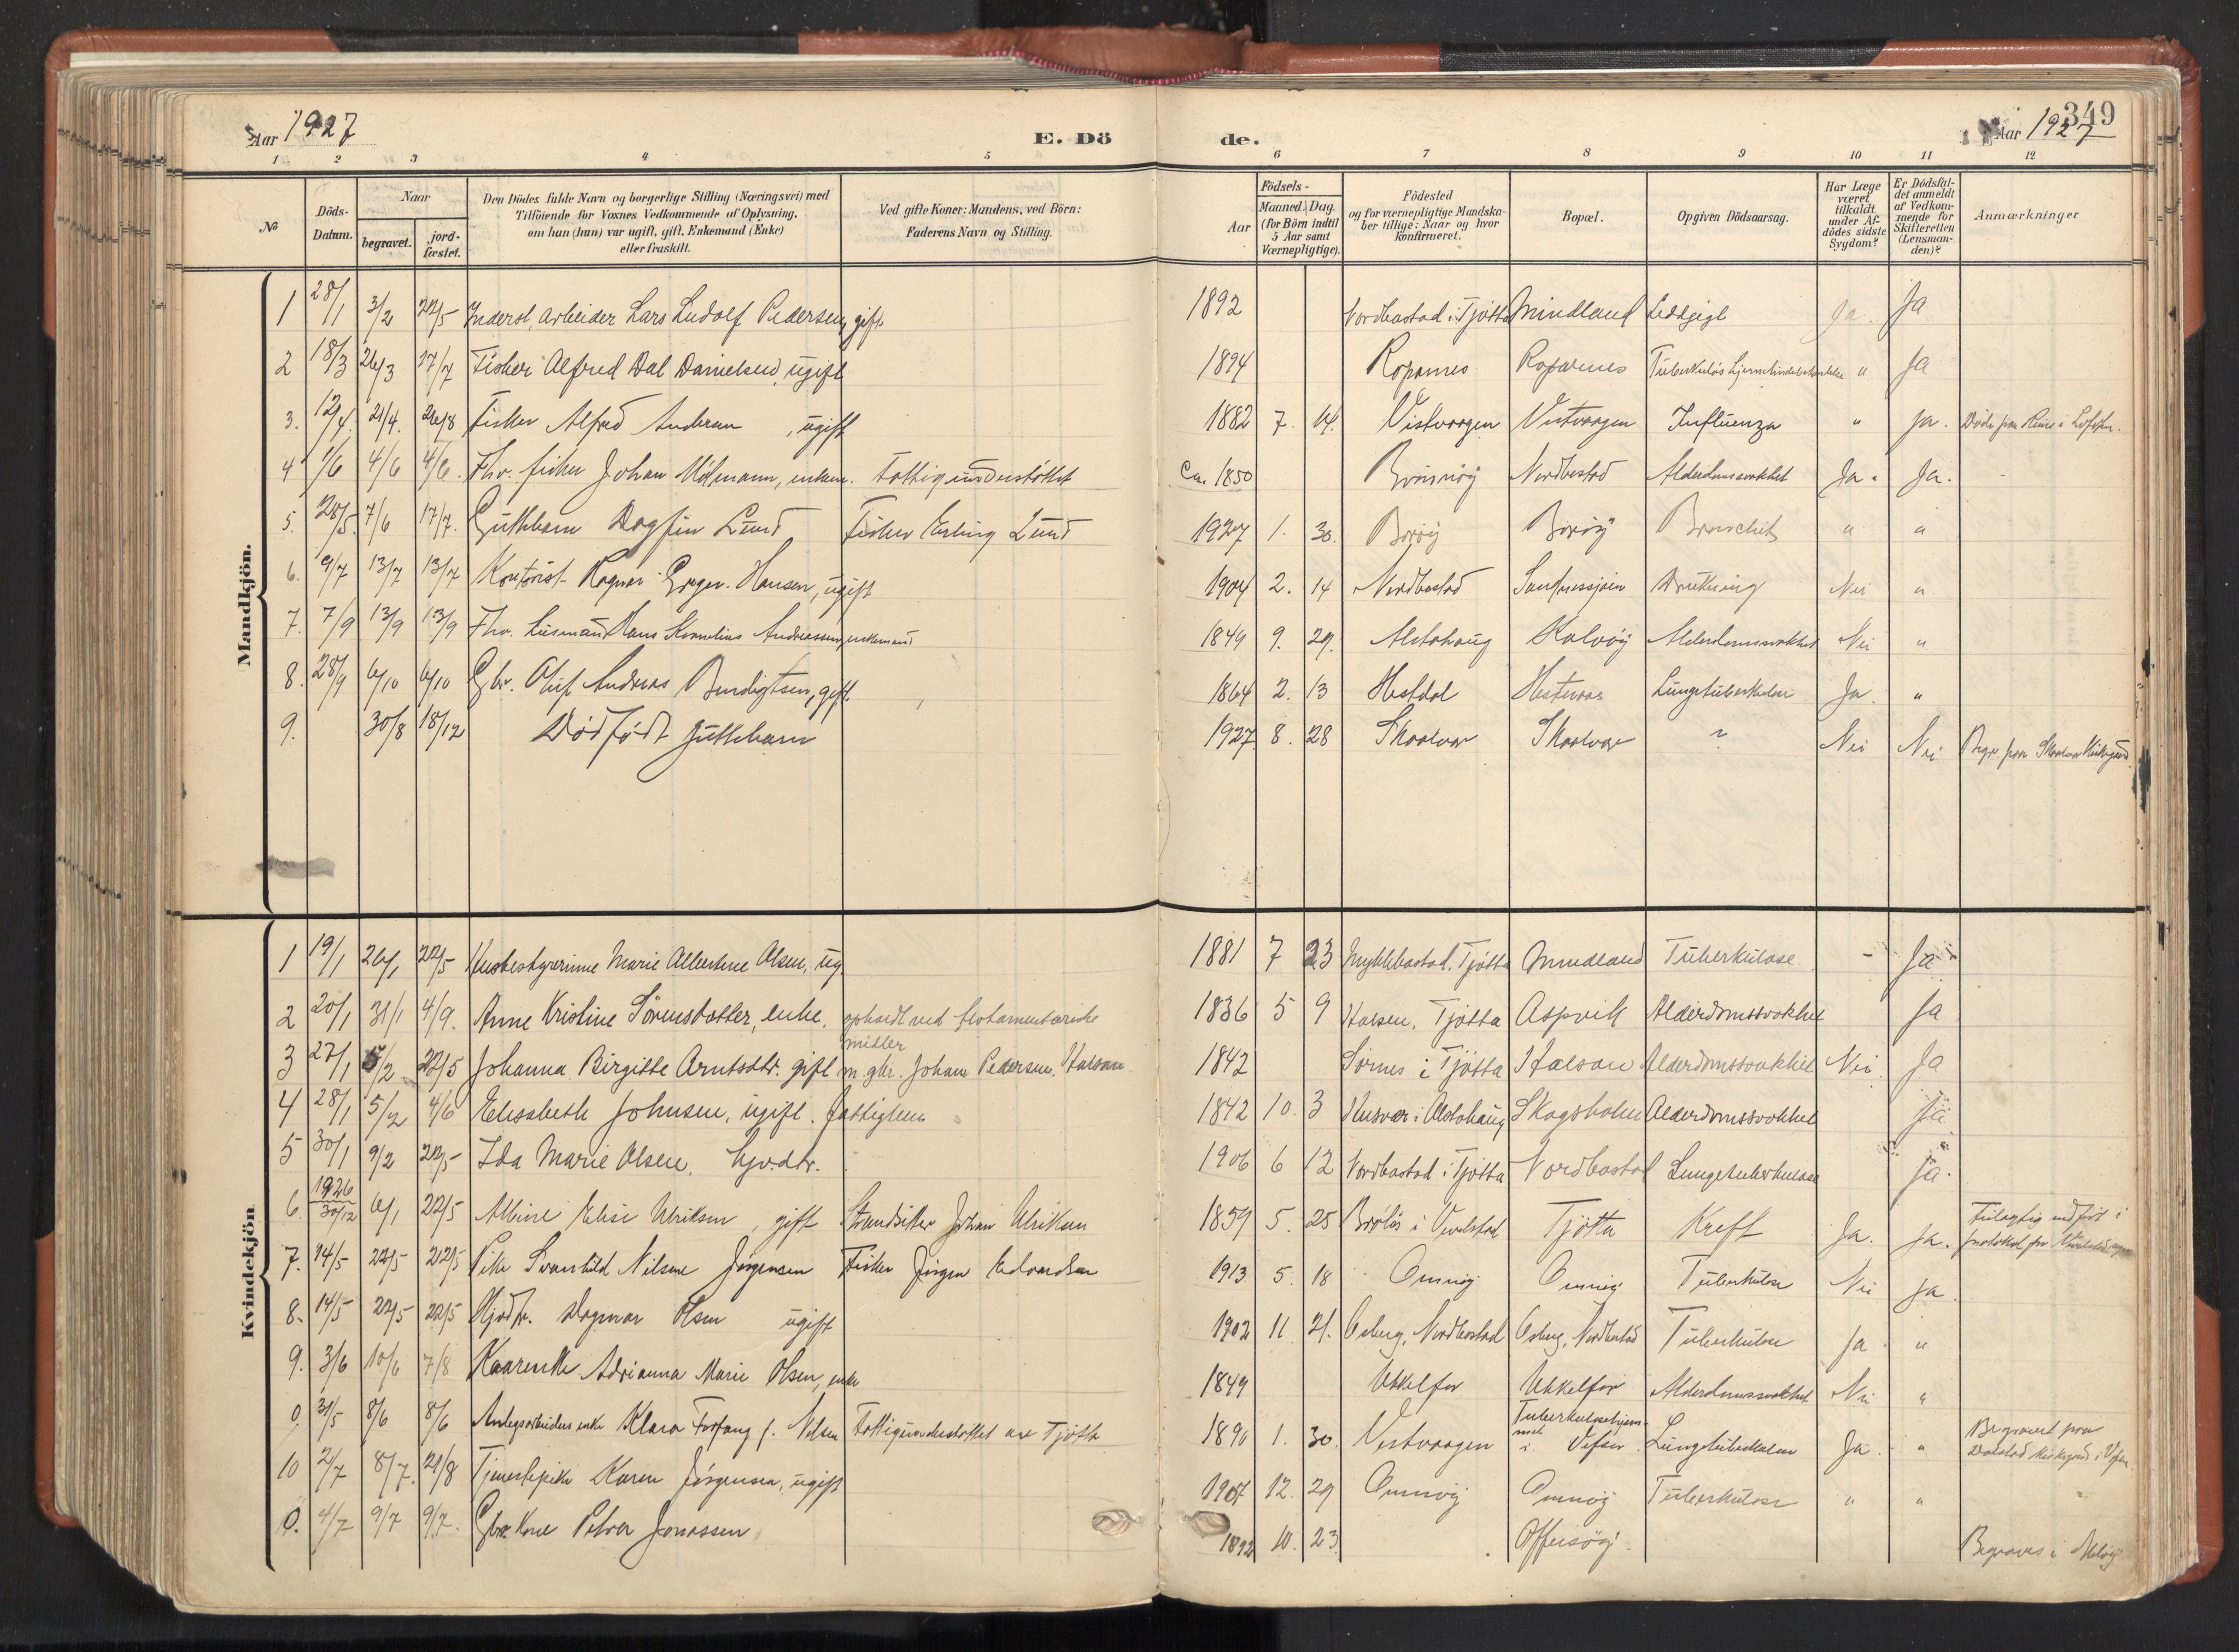 Aar 1927
E. Dö
de.
349
Aar 1927
1 2 3 4 5 6 7 8 9 10 11 12
№
Döds-Datum.
Naar
begravet.
jord-fæstet.
Den Dödes fulde Navn og borgerlige Stilling (Næringsvei) med
Tilföiende for Voxnes Vedkommende af Oplysning,
om han (hun) var ugift, gift, Enkemand (Enke)
eller fraskilt.
Ved gifte Koner: Mandens, ved Börn:
Faderens Navn og Stilling.
Födsels-
Aar
Maaned. Dag.
(for Börn indtil
5 Aar samt
Værnepligtige).
Födested
og for værnepligtige Mandska-
ber tillige: Naar og hvor
konfirmeret.
Bopæl.
Opgiven Dödsaarsag.
Har Læge
været
tilkaldt
under Af-
dödes sidste
Sygdom?
Er Dödsfal-
det anmeldt
af Vedkom-
mende for
Skifteretten
(Lensman-
den)?
Anmærkninger
Mandkjön.
1 28/1 3/2 22/5 Inderst, Arbeider Lars Ludolf Pedersen, gift 1892 Nordbostad i Tjøtta Mindland Ja Ja
2 18/3 26/3 17/7 Fisker Alfred Dal Danielsen, ugift 1894 Roparnes Roparnes " Ja
3. 12/4. 21/4. 26/8 Fisker Alfred Andersen, ugift 1882 7. 14. Vistvaagen Vistvaagen Influenza " Ja. Døde paa Reine i Lofoten.
4 1/6 4/6 4/6. Fhv. fisker Johan Holmann, enkem. Fattigunderstøttet Ca. 1850 Brønnøy Nordbostad Alderdomssvakhet Ja. Ja.
5. 28/5. 7/6 17/7. Guttebarn Dagfin Lund Fisker Erling Lund 1927 1. 30. Borøy Borøy Bronchit " "
6. 9/7 13/7 13/7 Kontorist Ragnar Hansen, ugift 1904 2. 14 Nordbostad Sandnessjøen Drukning Nei "
7. 7/9 13/9 13/9 Fhv. Lensmand Hans Kornelius Andreassen, enkemand 1849 9. 29. Alstahaug Kalvøy Alderdomssvakhet Nei "
8. 28/9 6/10 6/10 Gbr. Oluf Andreas Bendigtsen, gift. 1864 2. 13 Hestdal Hestnes Lungetuberkulose Ja "
9. 30/8 18/12 Dødfødt guttebarn 1927 8. 28 Skaalvær Skaalvær ? Nei Nei Begr. paa Skaalvær Kirkegaard
Kvindekjön
1 19/1 26/1 22/5 Husbestyrerinne Marie Albertine Olsen, ug 1881 7 23 Myklebostad, Tjøtta Mindland Tuberkulose - Ja
2 20/1 31/1 4/9. Anne Kristine Sørensdatter, enke, opholdt ved testamentariske midler 1836 5 9 Halsen, Tjøtta Aspvik Alderdomssvakhet Ja
3 27/1 5/2 22/5 Johanna Birgitte Arntsdtr. gift m. gbr. Johan Pedersen. Halsan 1842 Sørnes i Tjøtta Halsan Alderdomssvakhet Nei Ja
4 28/1 5/2 4/6 Elisabeth Johnsen, ugift. fattiglem 1842 10. 3 Husvær i Alstahaug Skogsholm Alderdomssvakhet Ja
5 30/1 9/2 22/5 Ida Marie Olsen, hjv.dtr. 1906 6 12 Nordbostad i Tjøtta Nordbostad Lungetuberkulose Ja.
6. 1926 30/12 6/1 22/5 Albine Elise Ulriksen, gift Strandsitter Johan Ulriksen 1859 5. 25 Brølös i Vevelstad Tjøtta Kreft Ja. Ja. indført i protokol for Vevelstad
7. 14/5 22/5 22/5 Pike Svanhild Nilsine Jørgensen Fisker Jørgen Edvardsen 1913 5. 18 Omnøy Omnøy Tuberkulose Nei Ja
8. 14/5 22/5 22/5 Hjvdtr. Dagmar Olsen ugift 1902 11 21. Osberg, Nordbostad Osberg, Nordbostad Tuberkulose Ja "
9. 3/6 10/6 7/8 Kaarenke Adrianna Marie Olsen, enke 1849 Ukkelfor Ukkelfor Alderdomssvakhet Nei "
0. 31/5 8/6 8/6 Anlegsarbeiders enke Klara Forfang f. Nilsen Fattigunderstøttet av Tjøtta 1890 1. 30. Vistvaagen Tuberkulosehjemmet i Vefsn Lungetuberkulose Ja. " Begravet paa Dolstad kirkegaard i Vefsn.
10 2/7 8/7. 21/8 Tjenestepike Karen Jørgensen, ugift 1907 12. 29 Omnøy Omnøy Tuberkulose " "
0. 4/7 9/7 9/7. Gbr. Kone Petra Jonassen 1892 10. 23. Offersøy. Begraves i Meløy